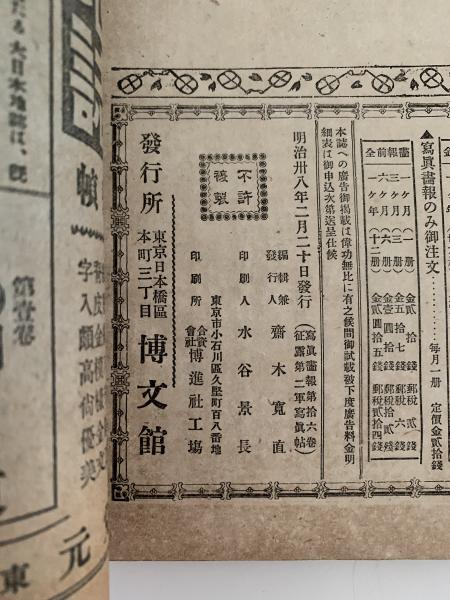 ▲寫眞畫報のみ御注文………每月一册 定價金貳拾錢
畫報前金
一ケ月(一册)金貳拾錢 郵稅貳錢
三ケ月(三册)金五拾七錢 郵稅六錢
六ケ月(六册)金壹圓拾錢 郵稅拾貳錢
一ケ年(十二册)金貳圓拾五錢 郵稅貳拾四錢
本誌への廣告御揭載は偉功無比に有之候間御試載被下度廣告料金明
細表は御申込次第送呈仕候
明治卅八年二月二十日發行
(寫眞畫報第拾六卷
征露第二軍寫眞帖)
不許
複製
編輯兼
發行人 齋木寬直
東京市小石川區久堅町百八番地
印刷人 水谷景長
印刷所 合資會社博進社工塲
發行所 東京日本橋區
本町三丁目 博文館
第壹卷
字入額高尙優美
元
東
たる大日本地誌は、旣